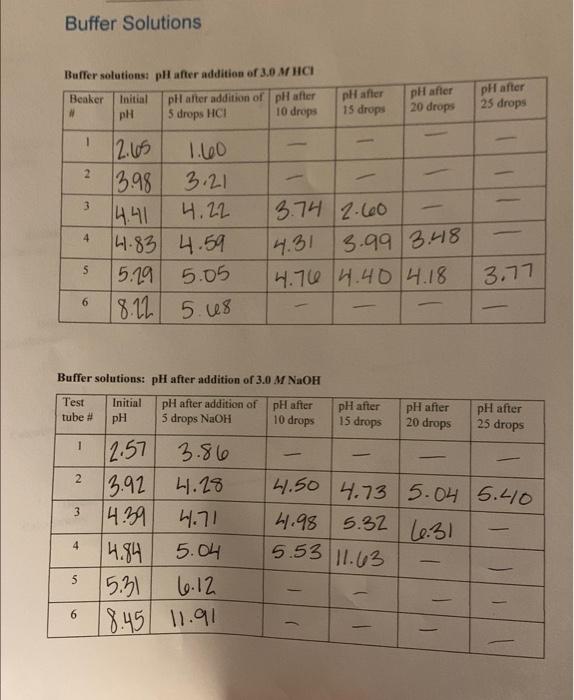 Buffer Solutions
Buffer solutions: pH after addition of 3.0 M HCl
Beaker # | Initial pH | pH after addition of 5 drops HCl | pH after 10 drops | pH after 15 drops | pH after 20 drops | pH after 25 drops
1 | 2.65 | 1.60 | — | — | — | —
2 | 3.98 | 3.21 | — | — | — | —
3 | 4.41 | 4.22 | 3.74 | 2.60 | — | —
4 | 4.83 | 4.59 | 4.31 | 3.99 | 3.48 | —
5 | 5.29 | 5.05 | 4.76 | 4.40 | 4.18 | 3.77
6 | 8.22 | 5.68 | — | — | — | —
Buffer solutions: pH after addition of 3.0 M NaOH
Test tube # | Initial pH | pH after addition of 5 drops NaOH | pH after 10 drops | pH after 15 drops | pH after 20 drops | pH after 25 drops
1 | 2.57 | 3.86 | — | — | — | —
2 | 3.92 | 4.28 | 4.50 | 4.73 | 5.04 | 5.40
3 | 4.39 | 4.71 | 4.98 | 5.32 | 6.31 | —
4 | 4.84 | 5.04 | 5.53 | 11.63 | — | —
5 | 5.31 | 6.12 | — | — | — | —
6 | 8.45 | 11.91 | — | — | — | —